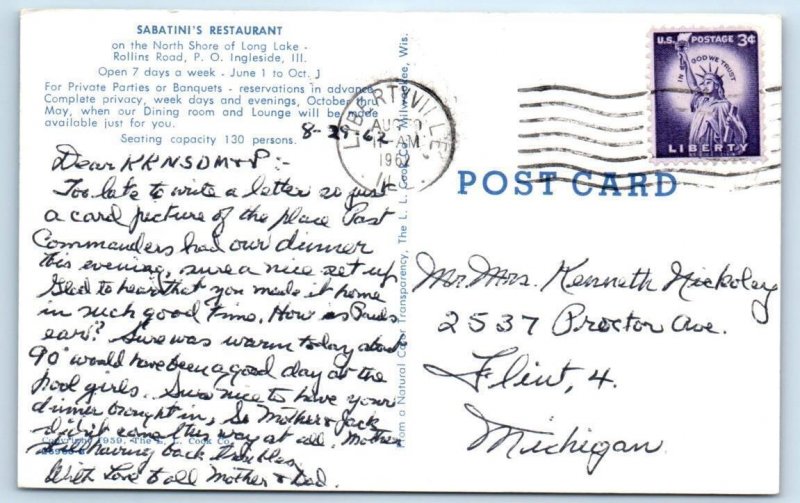 SABATINI'S RESTAURANT
on the North Shore of Long Lake -
Rollins Road, P. O. Ingleside, Ill.
Open 7 days a week - June 1 to Oct. J
For Private Parties or Banquets - reservations in advance
Complete privacy, week days and evenings, October thru
May, when our Dining room and Lounge will be made
available just for you.
Seating capacity 130 persons.
8-29-62
Dear KKNSDM+P:-
Too late to write a letter so just
a card picture of the place Past
Commanders had our dinner
this evening, sure a nice set up
Glad to hear that you made it home
in such good time. How is Pauls
ear? Sure was warm today about
90° would have been a good day at the
pool girls. Sure nice to have your
dinner brought in, So Mother & Jack
didn't come this way at all. Mother
still having back troubles
With Love to all Mother & Dad.
Copyright 1959, The L. L. Cook Co.
From a Natural Color Transparency, The L. L. Cook Co., Milwaukee, Wis.
LIBERTYVILLE,
AUG 30
AM
1962
ILL
U.S. POSTAGE 3¢
IN GOD WE TRUST
LIBERTY
POST CARD
Mr. Mrs. Kenneth Nickoley
2537 Proctor Ave.
Flint, 4.
Michigan.